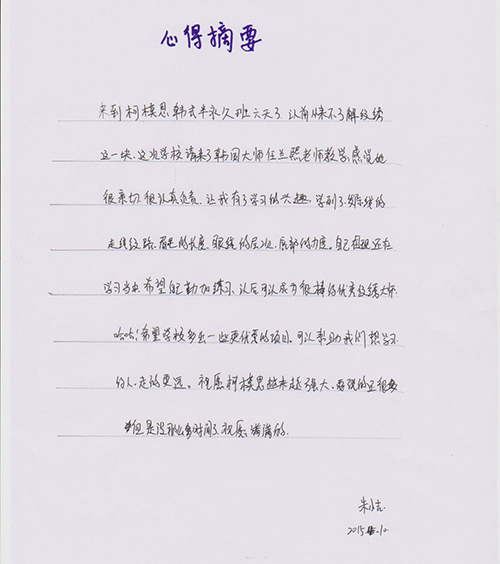 心得摘要
来到柯模思韩式半永久班六天了,以前从来不了解纹绣
这一块,这次学校请来了韩国大师任兰熙老师教学,感觉她
很亲切,很认真负责,让我有了学习的兴趣,学到了线的
走线纹路,眉毛的长度,眼线的层次,唇部的力度。自己现在还在
学习当中希望自己勤加练习,以后可以成为很棒的优秀纹绣大师
哈哈!希望学校多出一些更优秀的项目,可以帮助我们想学习
的人,走的更远。祝愿柯模思越来越强大、要说的还很多
但是没那么多时间了,祝愿,满满的.
朱小吉.
2015.10